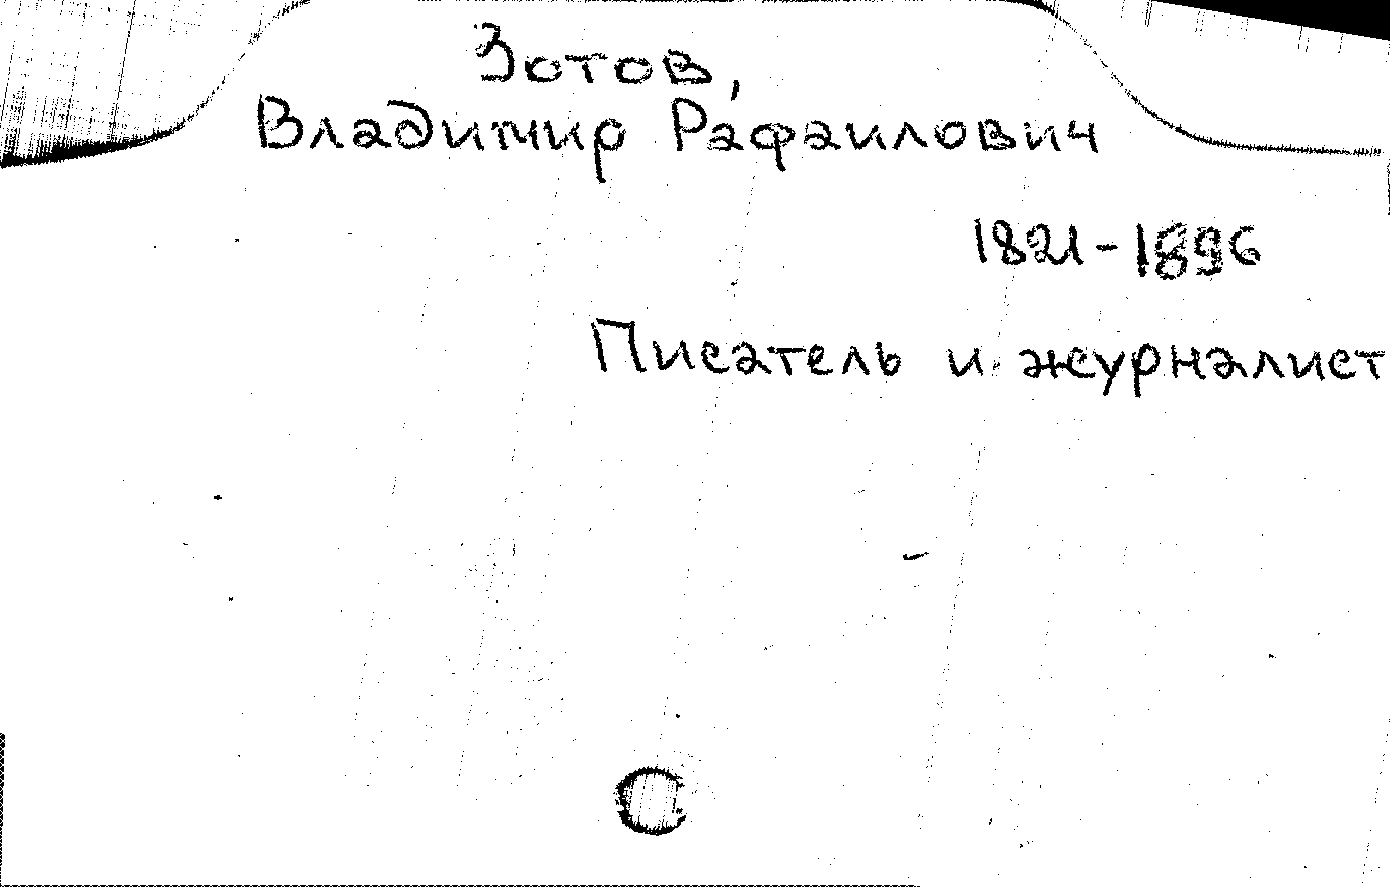 Зотов,
Владимир Рафаилович
1821-1896
Писатель и журналист